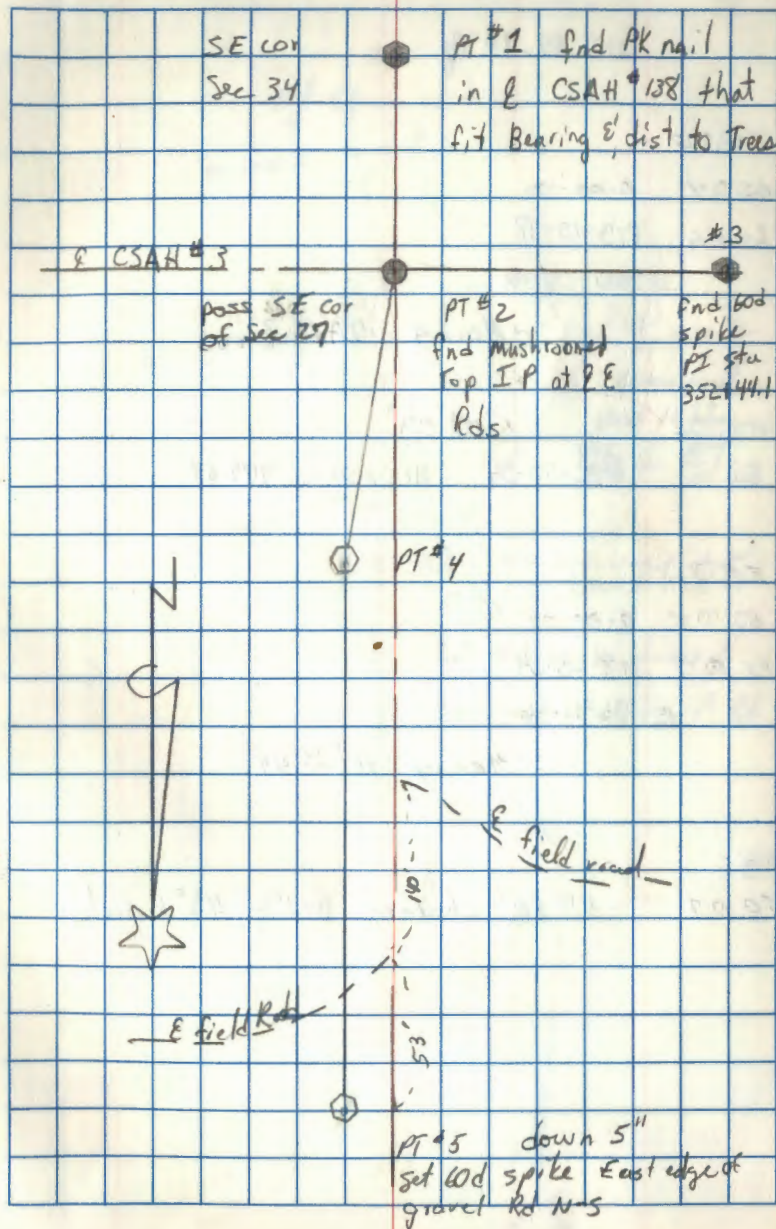 SE cor
Sec 34
PT #1 fnd PK nail
in ℄ CSAH #138 that
fit Bearing & dist to Trees
℄ CSAH #3
poss SE cor
of Sec 27
PT #2
fnd mushroomed
Top IP at ℄ ℄
Rds
#3
fnd 60d
spike
PI sta
352+44.1
PT #4
N
℄ field road
140'
℄ field Rd
53'
PT #5 down 5"
set 60d spike East edge of
gravel Rd N-S